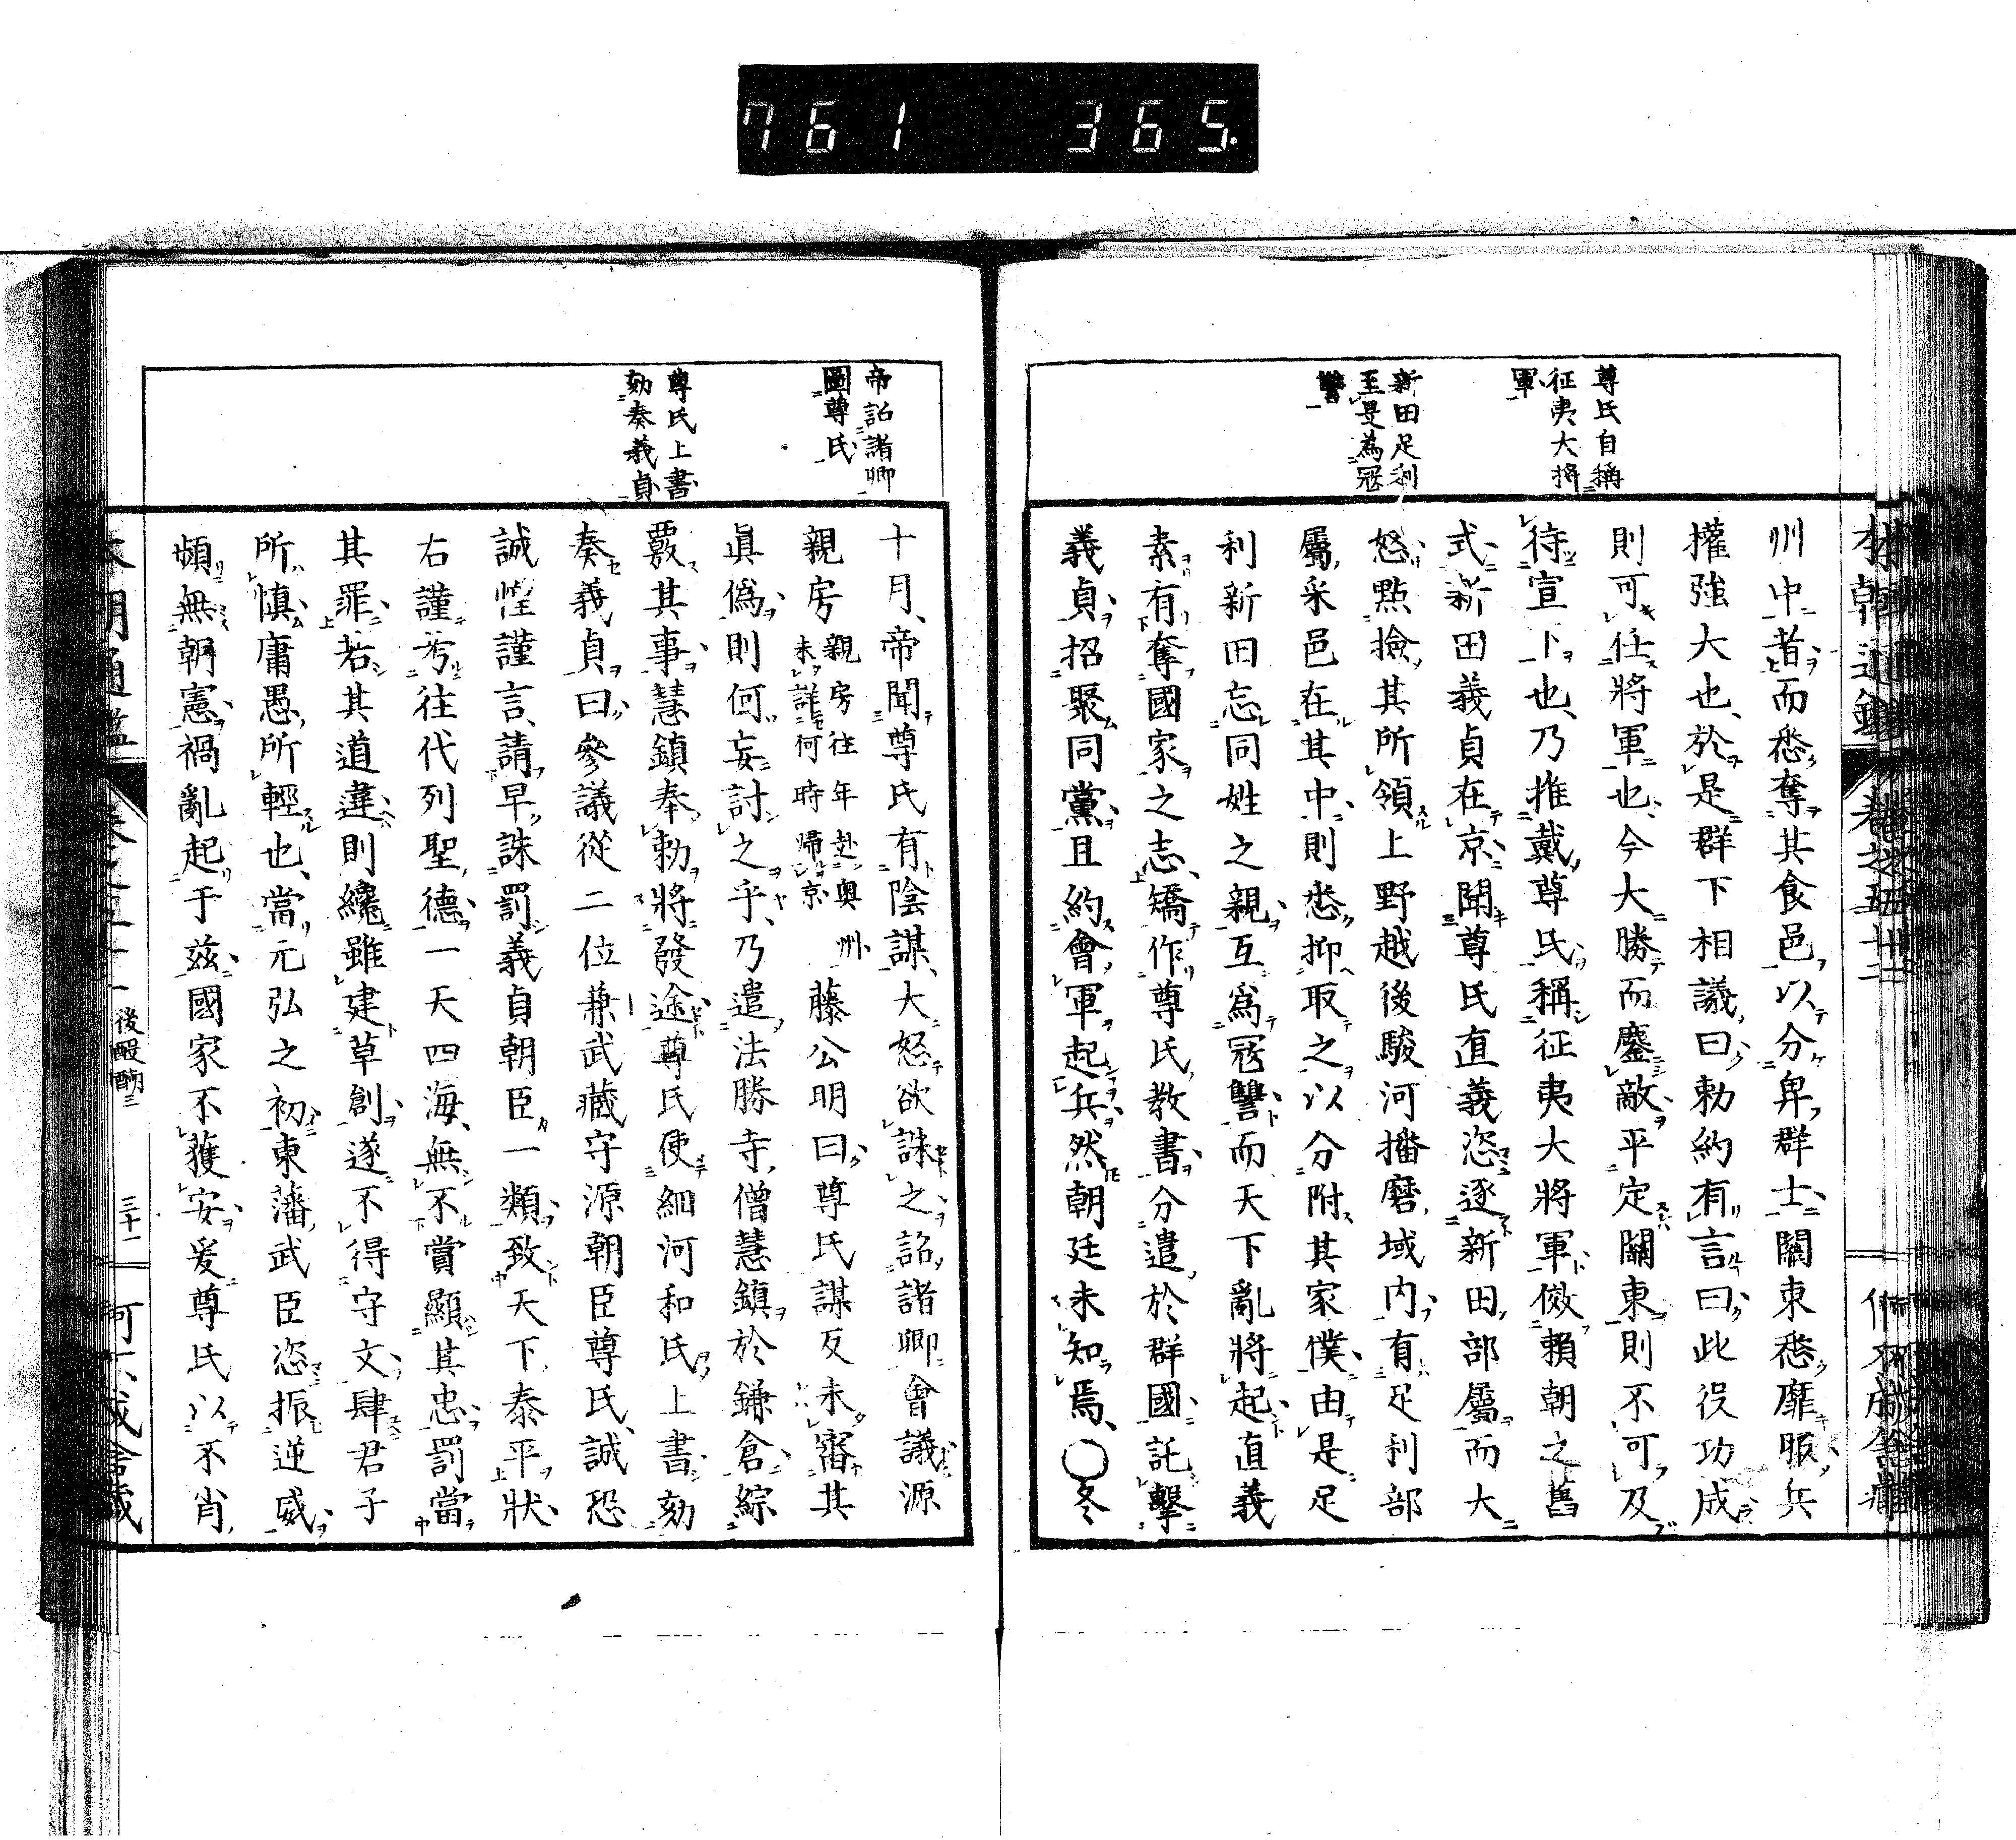 761 365.
尊氏自稱
征夷大將
軍
新田足利
至是為冦
讐
州中者而悉奪其食邑以分卑群士關東悉靡服兵
權強大也於是群下相議曰勅約有言曰此役功成
則可任將軍也今大勝而鏖敵平定關東則不可及
待宣下也乃推戴尊氏稱征夷大將軍傚賴朝之舊
式新田義貞在京聞尊氏直義恣逐新田部屬而大
怒點撿其所領上野越後駿河播磨域内有足利部
屬采邑在其中則悉抑取之以分附其家僕由是足
利新田忘同姓之親互爲冦讐而天下亂將起直義
素有奪國家之志矯作尊氏教書分遣於群國託擊
義貞招聚同黨且約會軍起兵然朝廷未知焉○冬
帝詔諸卿
圖尊氏
尊氏上書
劾奏義貞
十月帝聞尊氏有陰謀大怒欲誅之詔諸卿會議源
親房親房往年赴奧州
未詳何時歸京藤公明曰尊氏謀反未審其
眞僞則何妄討之乎乃遣法勝寺僧慧鎮於鎌倉綜
覈其事慧鎮奉勅將發途尊氏使細河和氏上書劾
奏義貞曰參議從二位兼武藏守源朝臣尊氏誠恐
誠惶謹言請早誅罰義貞朝臣一類致天下泰平狀
右謹考往代列聖德一天四海無不賞顯其忠罰當
其罪若其道違則纔雖建草創遂不得守文肆君子
所愼庸愚所輕也當元弘之初東藩武臣恣振逆威
頻無朝憲禍亂起于茲國家不獲安爰尊氏以不肖
後醍醐三
三十一